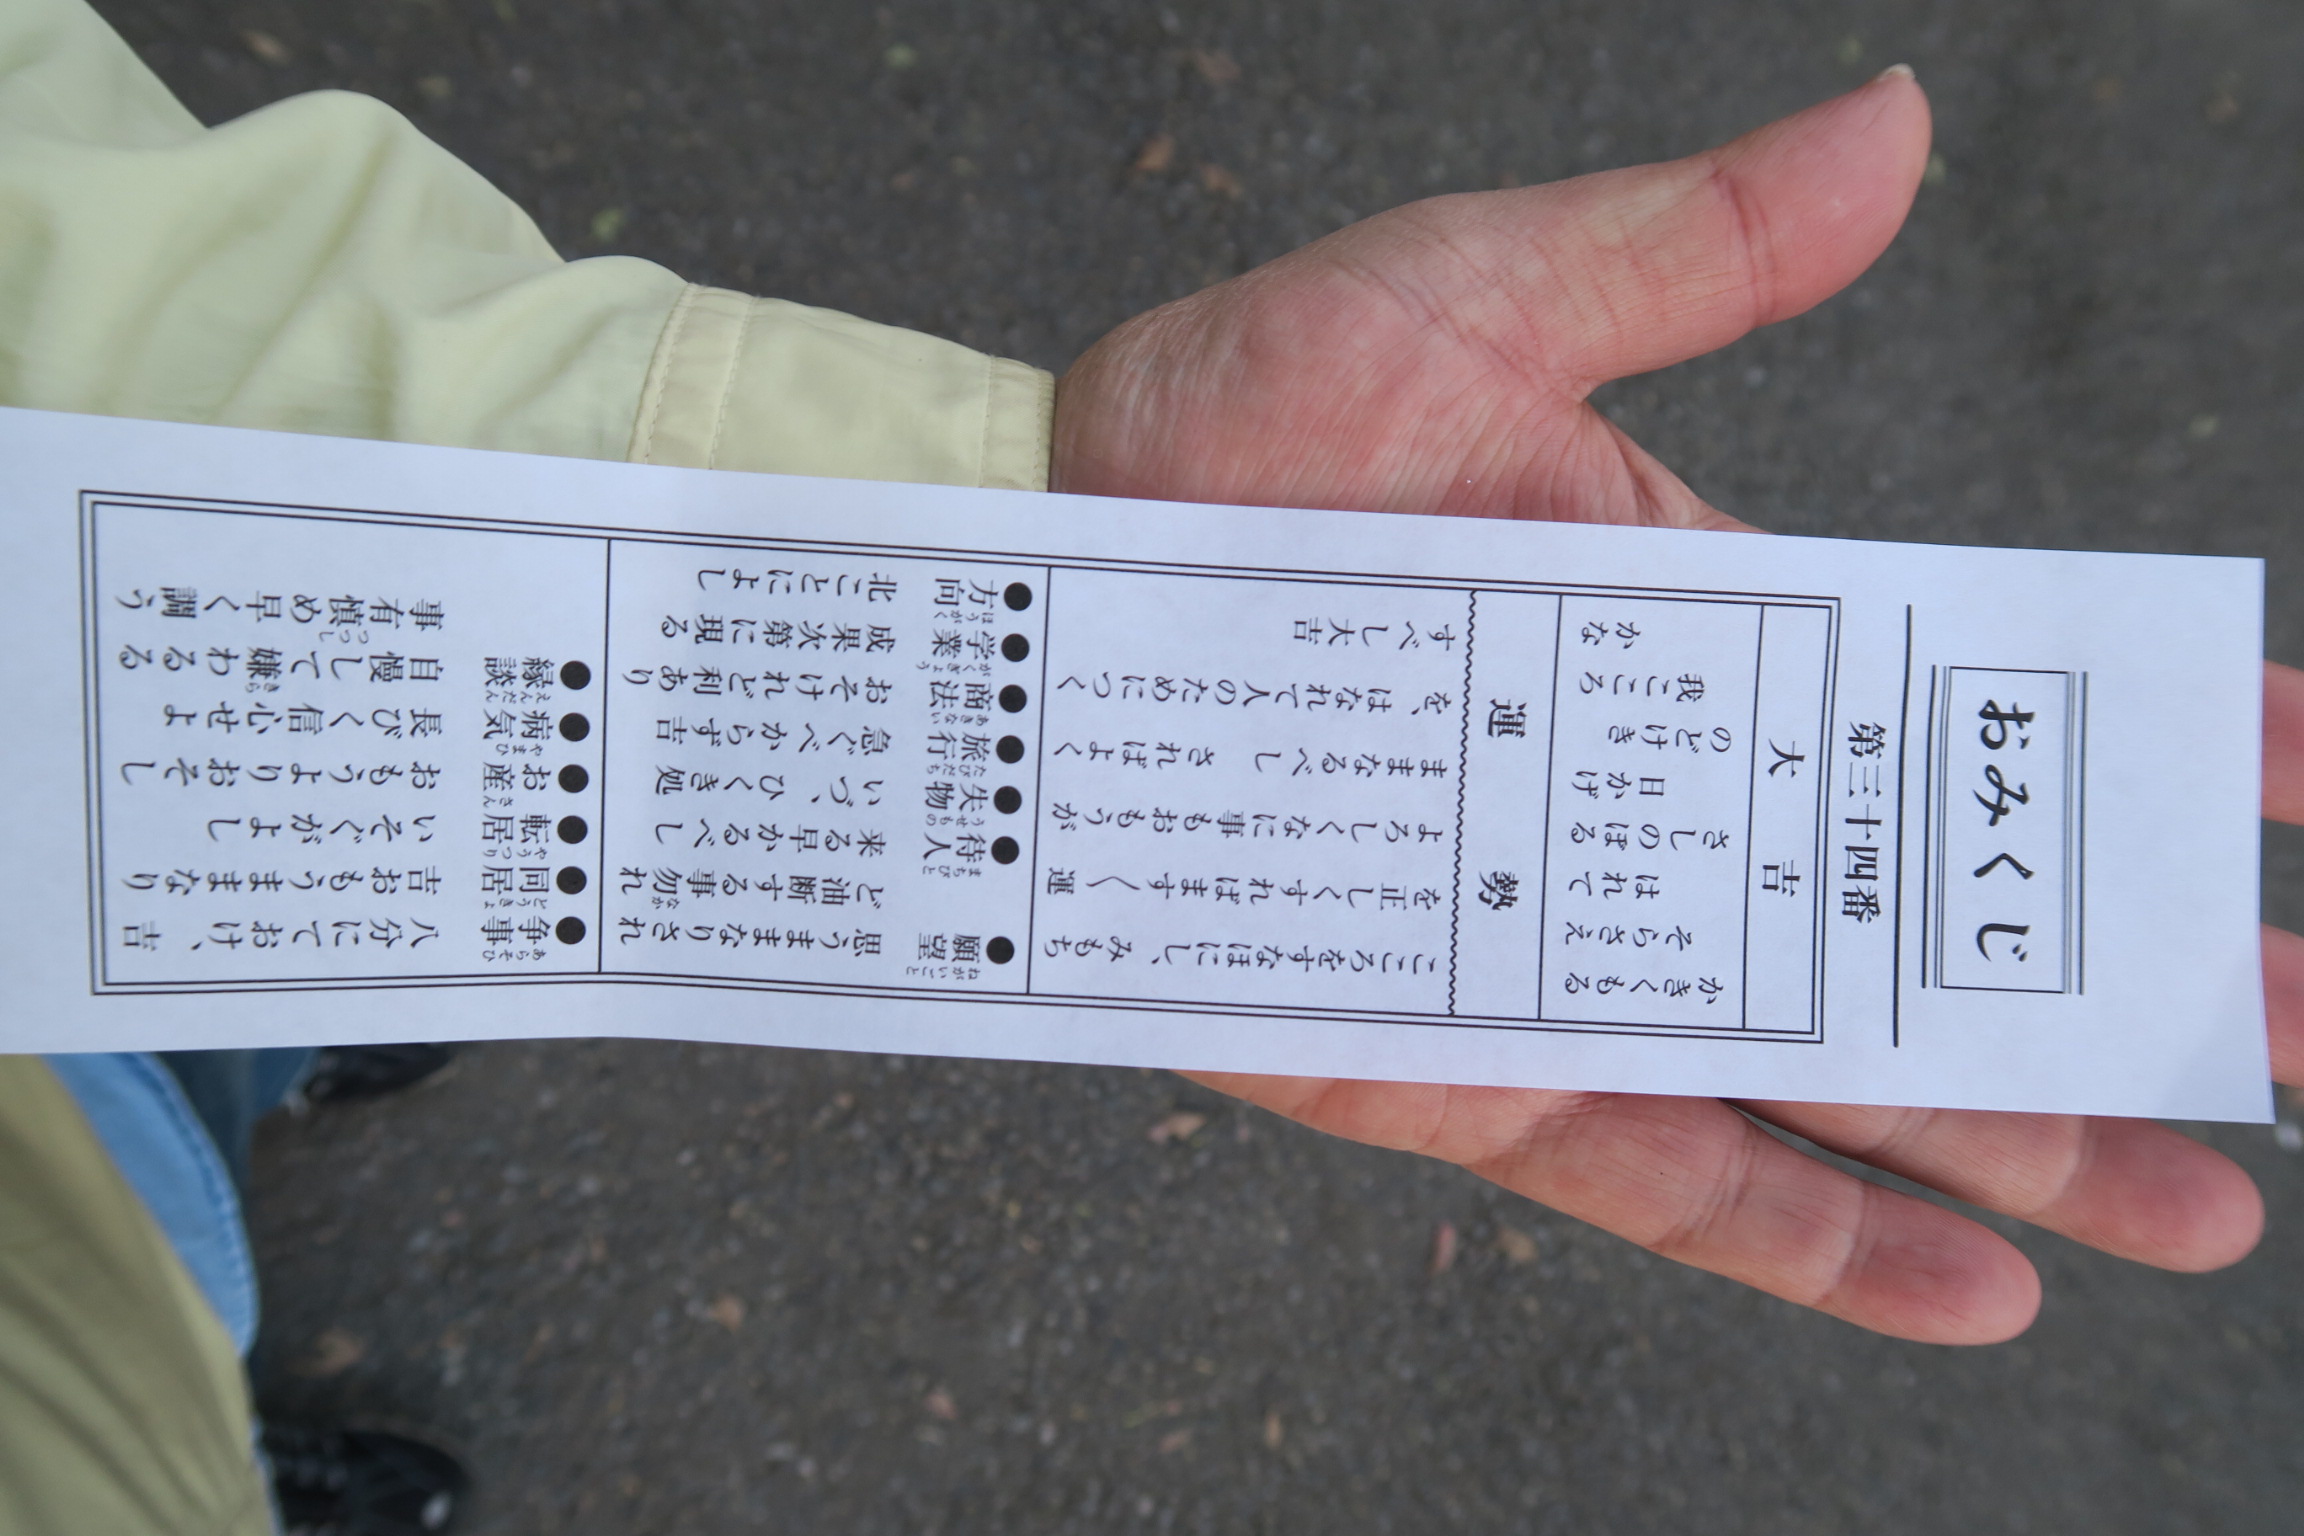 おみくじ
第三十四番
大吉
かきくもる
そらさえ
はれて
さしのぼる
日かげ
のどけき
我こころ
かな
運勢
こころをすなほにし、みもち
を正しくすればます〱運
よろしくなに事もおもうが
ままなるべし さればよく
を、はなれて人のためにつく
すべし大吉
●願望 思うままなりされ
ど油断する事勿れ
●待人 来る早かるべし
●失物 いづ、ひくき処
●旅行 急ぐべからず吉
●商法 おそけれど利あり
●学業 成果次第に現る
●方向 北ことによし
●争事 八分にておけ、吉
●同居 吉おもうままなり
●転居 いそぐがよし
●お産 おもうよりおそし
●病気 長びく信心せよ
●縁談 自慢して嫌わるる
事有慎め早く調う